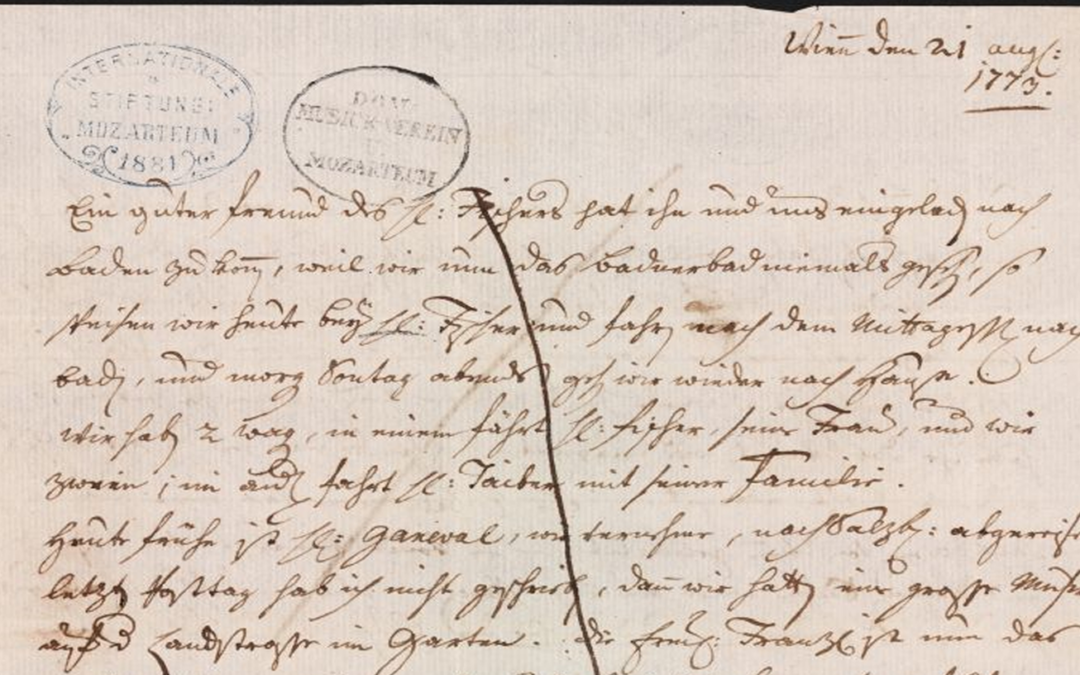 Wienn den 21 aug:
1773.
INTERNATIONALE
STIFTUNG:
MOZARTEUM
1881
DOM-
MUSIK-VEREIN
U
MOZARTEUM
Ein guter freund des H: Fischers hat ihn und uns eingeladen nach
Baden zu kommen, weil wir nun das badnerbad niemals gesehen, so
speisen wir heute bey H: Fischer und fahren nach dem Mittagessen nach
baden, und morgen Sontag abends gehen wir wieder nach Hause.
Wir haben 2 wagen, in einem fährt H: fischer, seine Frau, und wir
zween; im andern fahrt H: Teiber mit seiner Familie.
Heute frühe ist H: Ganeval, wie vernehme, nach Salzb: abgereist
letzten Posttag hab ich nicht geschrieben, dann wir hatten eine grosse Musik
auf d Landstrasse im Garten. die freule: Franzl ist nun das